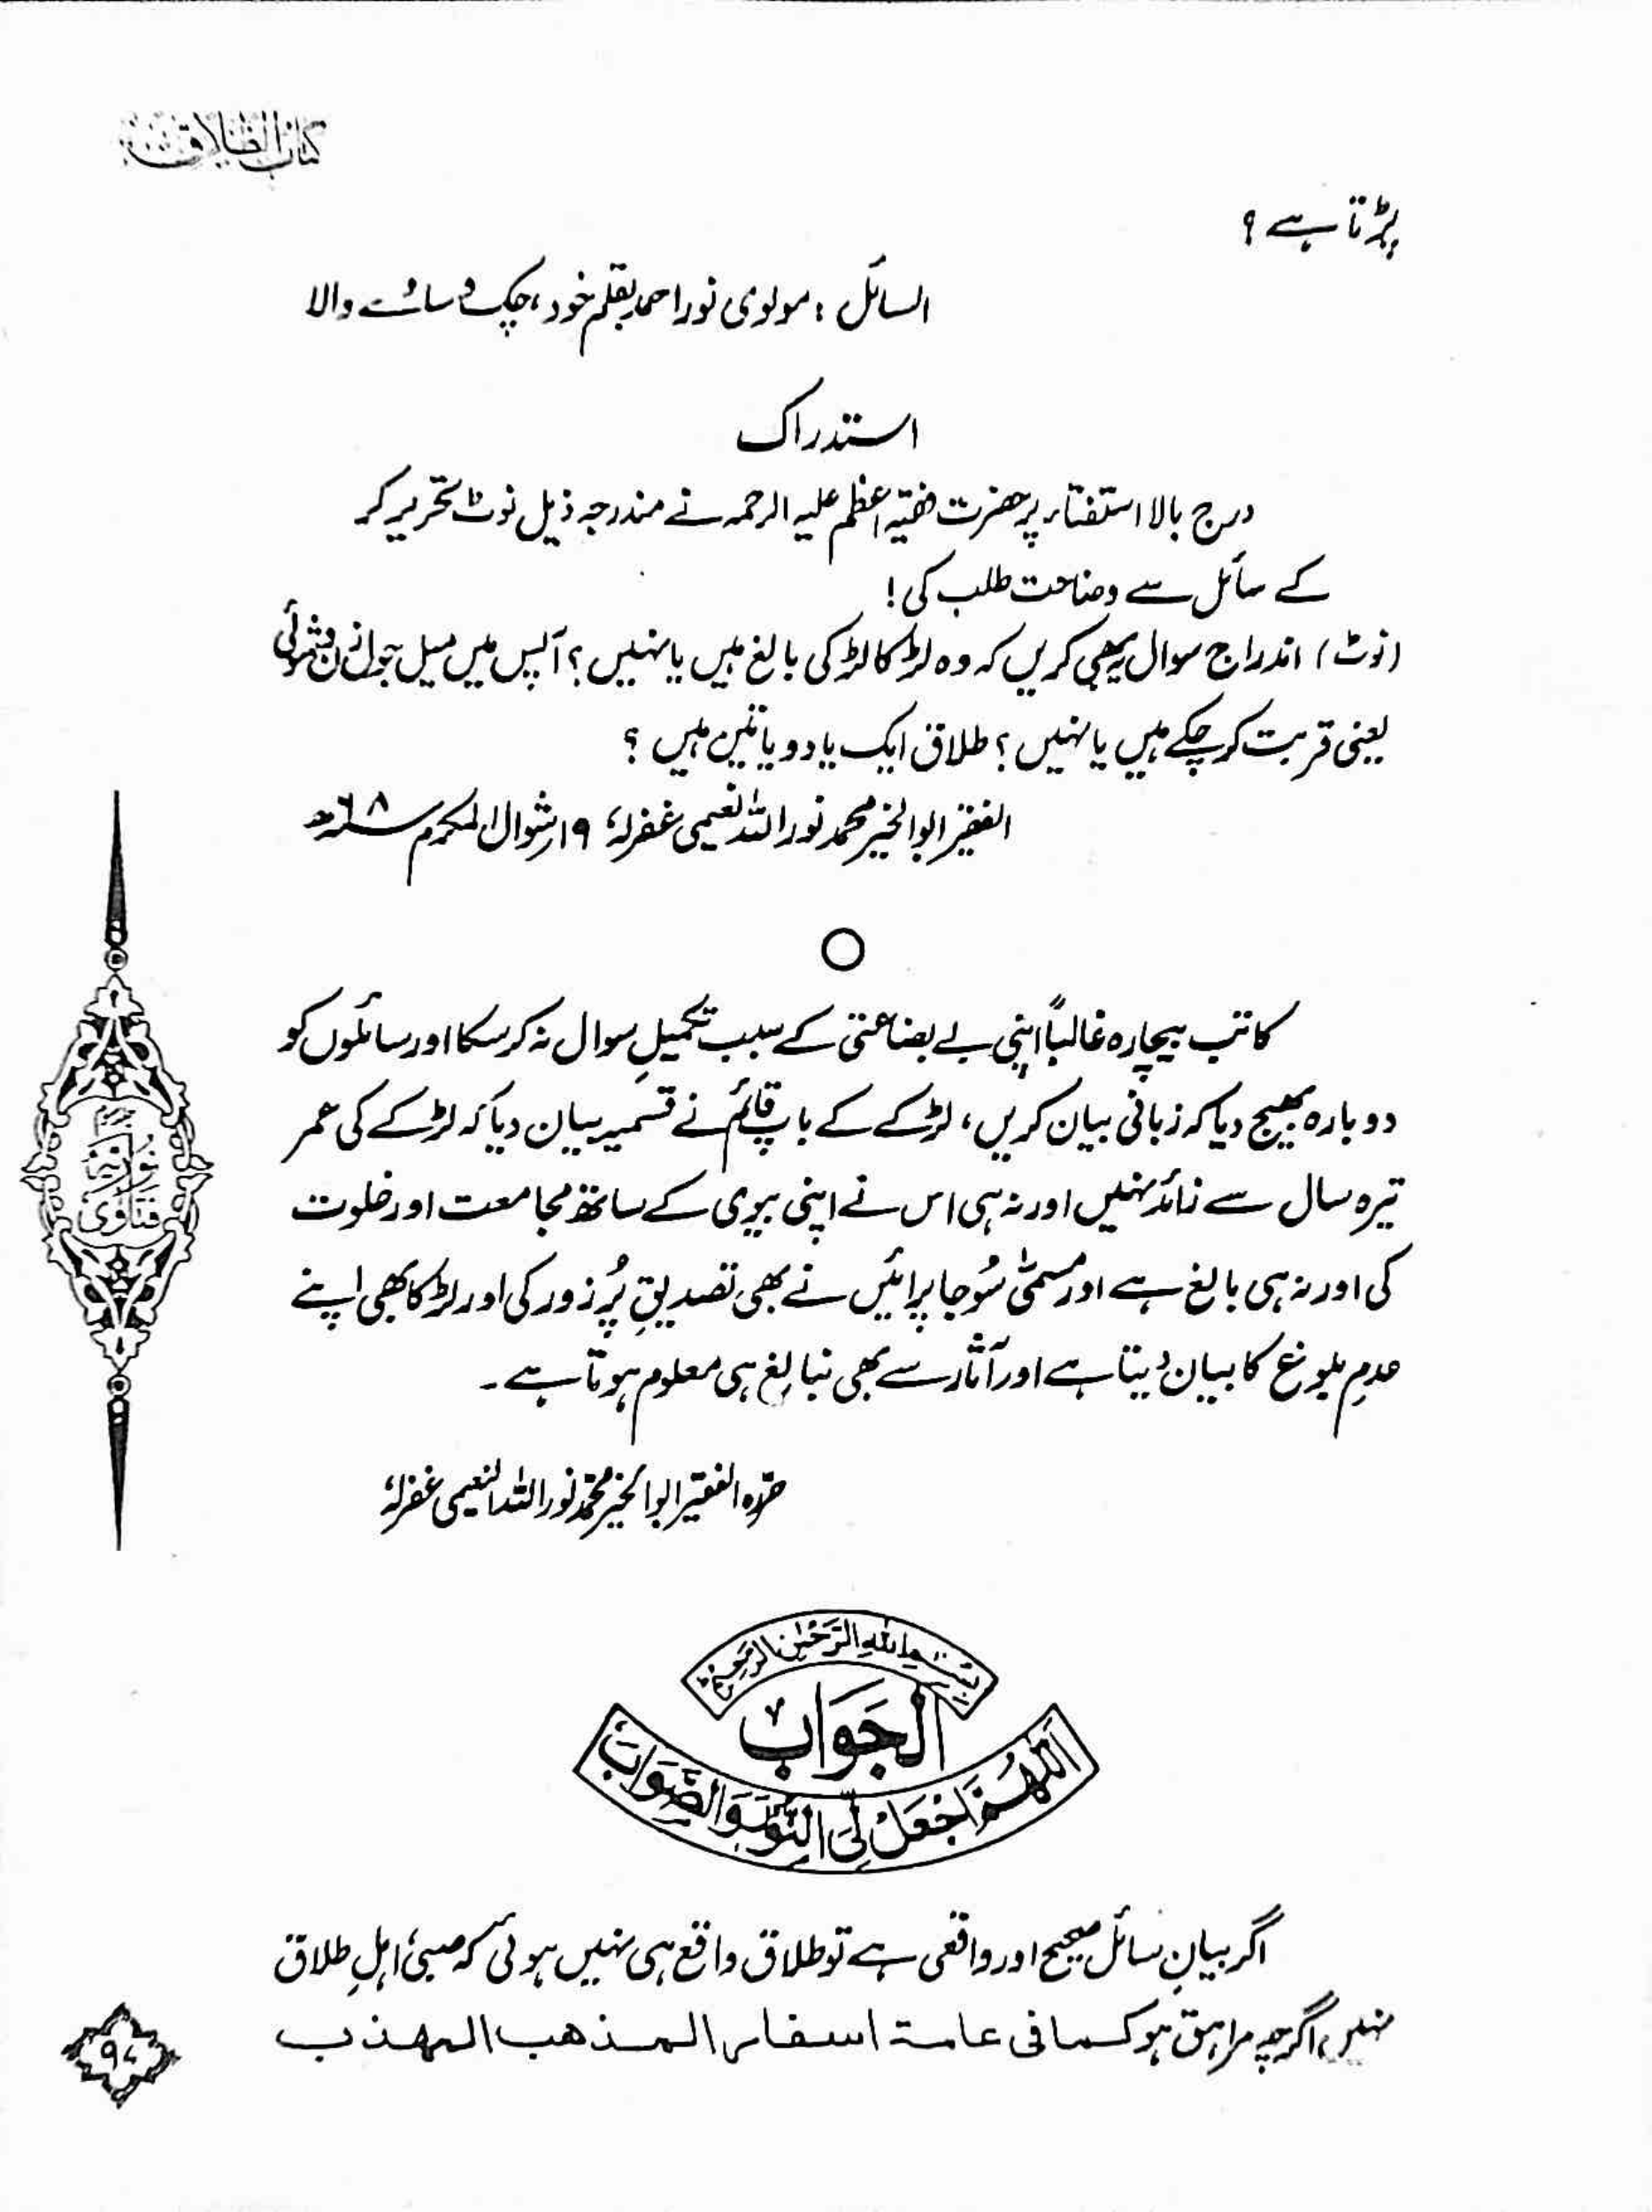 کتاب الطلاق
پڑتا ہے ؟
السائل : مولوی نور احمد بقلم خود، چک سائے والا
استدراک
درج بالا استفتاء پر حضرت فقیہ اعظم علیہ الرحمہ نے مندرجہ ذیل نوٹ تحریر کر
کے سائل سے وضاحت طلب کی !
(نوٹ) اندراج سوال یہ بھی کریں کہ وہ لڑکا لڑکی بالغ ہیں یا نہیں ؟ آپس میں میل جول زن و شوئی
یعنی قربت کر چکے ہیں یا نہیں ؟ طلاق ایک یا دو یا تین ہیں ؟
الفقیر ابوالخیر محمد نور اللہ نعیمی غفرلہٗ ۱۹ر شوال المکرم ۶۸ھ
کاتب بیچارہ غالباً اپنی بے بضاعتی کے سبب تکمیلِ سوال نہ کر سکا اور سائلوں کو
دوبارہ بھیج دیا کہ زبانی بیان کریں، لڑکے کے باپ قائم نے قسمیہ بیان دیا کہ لڑکے کی عمر
تیرہ سال سے زائد نہیں اور نہ ہی اس نے اپنی بیوی کے ساتھ مجامعت اور خلوت
کی اور نہ ہی بالغ ہے اور مسمّٰی سُوجا پرائیں نے بھی تصدیقِ پُر زور کی اور لڑکا بھی اپنے
عدمِ بلوغ کا بیان دیتا ہے اور آثار سے بھی نبالغ ہی معلوم ہوتا ہے ۔
حررہ الفقیر ابوالخیر محمد نور اللہ النعیمی غفرلہٗ
فتاوٰی نوریہ
بِسْمِ اللهِ الرَّحْمٰنِ الرَّحِيْمِ
الجَوَابُ
اَللّٰهُمَّ اجْعَلْ لِّیَ النُّوْرَ وَالصَّوَابَ
اگر بیانِ سائل صحیح اور واقعی ہے تو طلاق واقع ہی نہیں ہوئی کہ صبیٔ اہلِ طلاق
نہیں، اگرچہ مراہق ہو کما فی عامۃ اسفار المذھب المہذب
۹۷